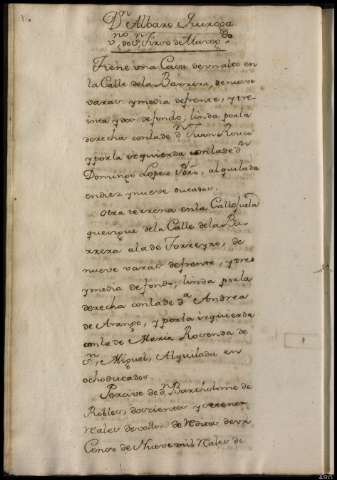 Dn. Albaro Quiroga
vno. de Sn.
Tiene una Casa de un alto en
la Calle de la Barrera, de nueve
varas y media de frente, y tre-
inta y dos de fondo; linda por la
derecha con la de Dn. Juan Roura
y por la izquierda con la de dn.
Domingo Lopez Pbro. alquilada
en diez y nueve ducados.
otra terrena en la Callejuela
que sigue de la Calle de la Ba-
rrera a la de Torreyro, de
nueve varas de frente, y tres
y media de fondo, linda por la
derecha con la de Da. Andrea
de Arango, y por la izquierda
con la de Maria Rosenda de
Sn. Miguel, Alquilada en
ocho ducados.
Percive de Dn. Bartholome de
Robles, doscientos y treinta
Reales de vellon de Redito de un
Censo de Nueve mil Reales de